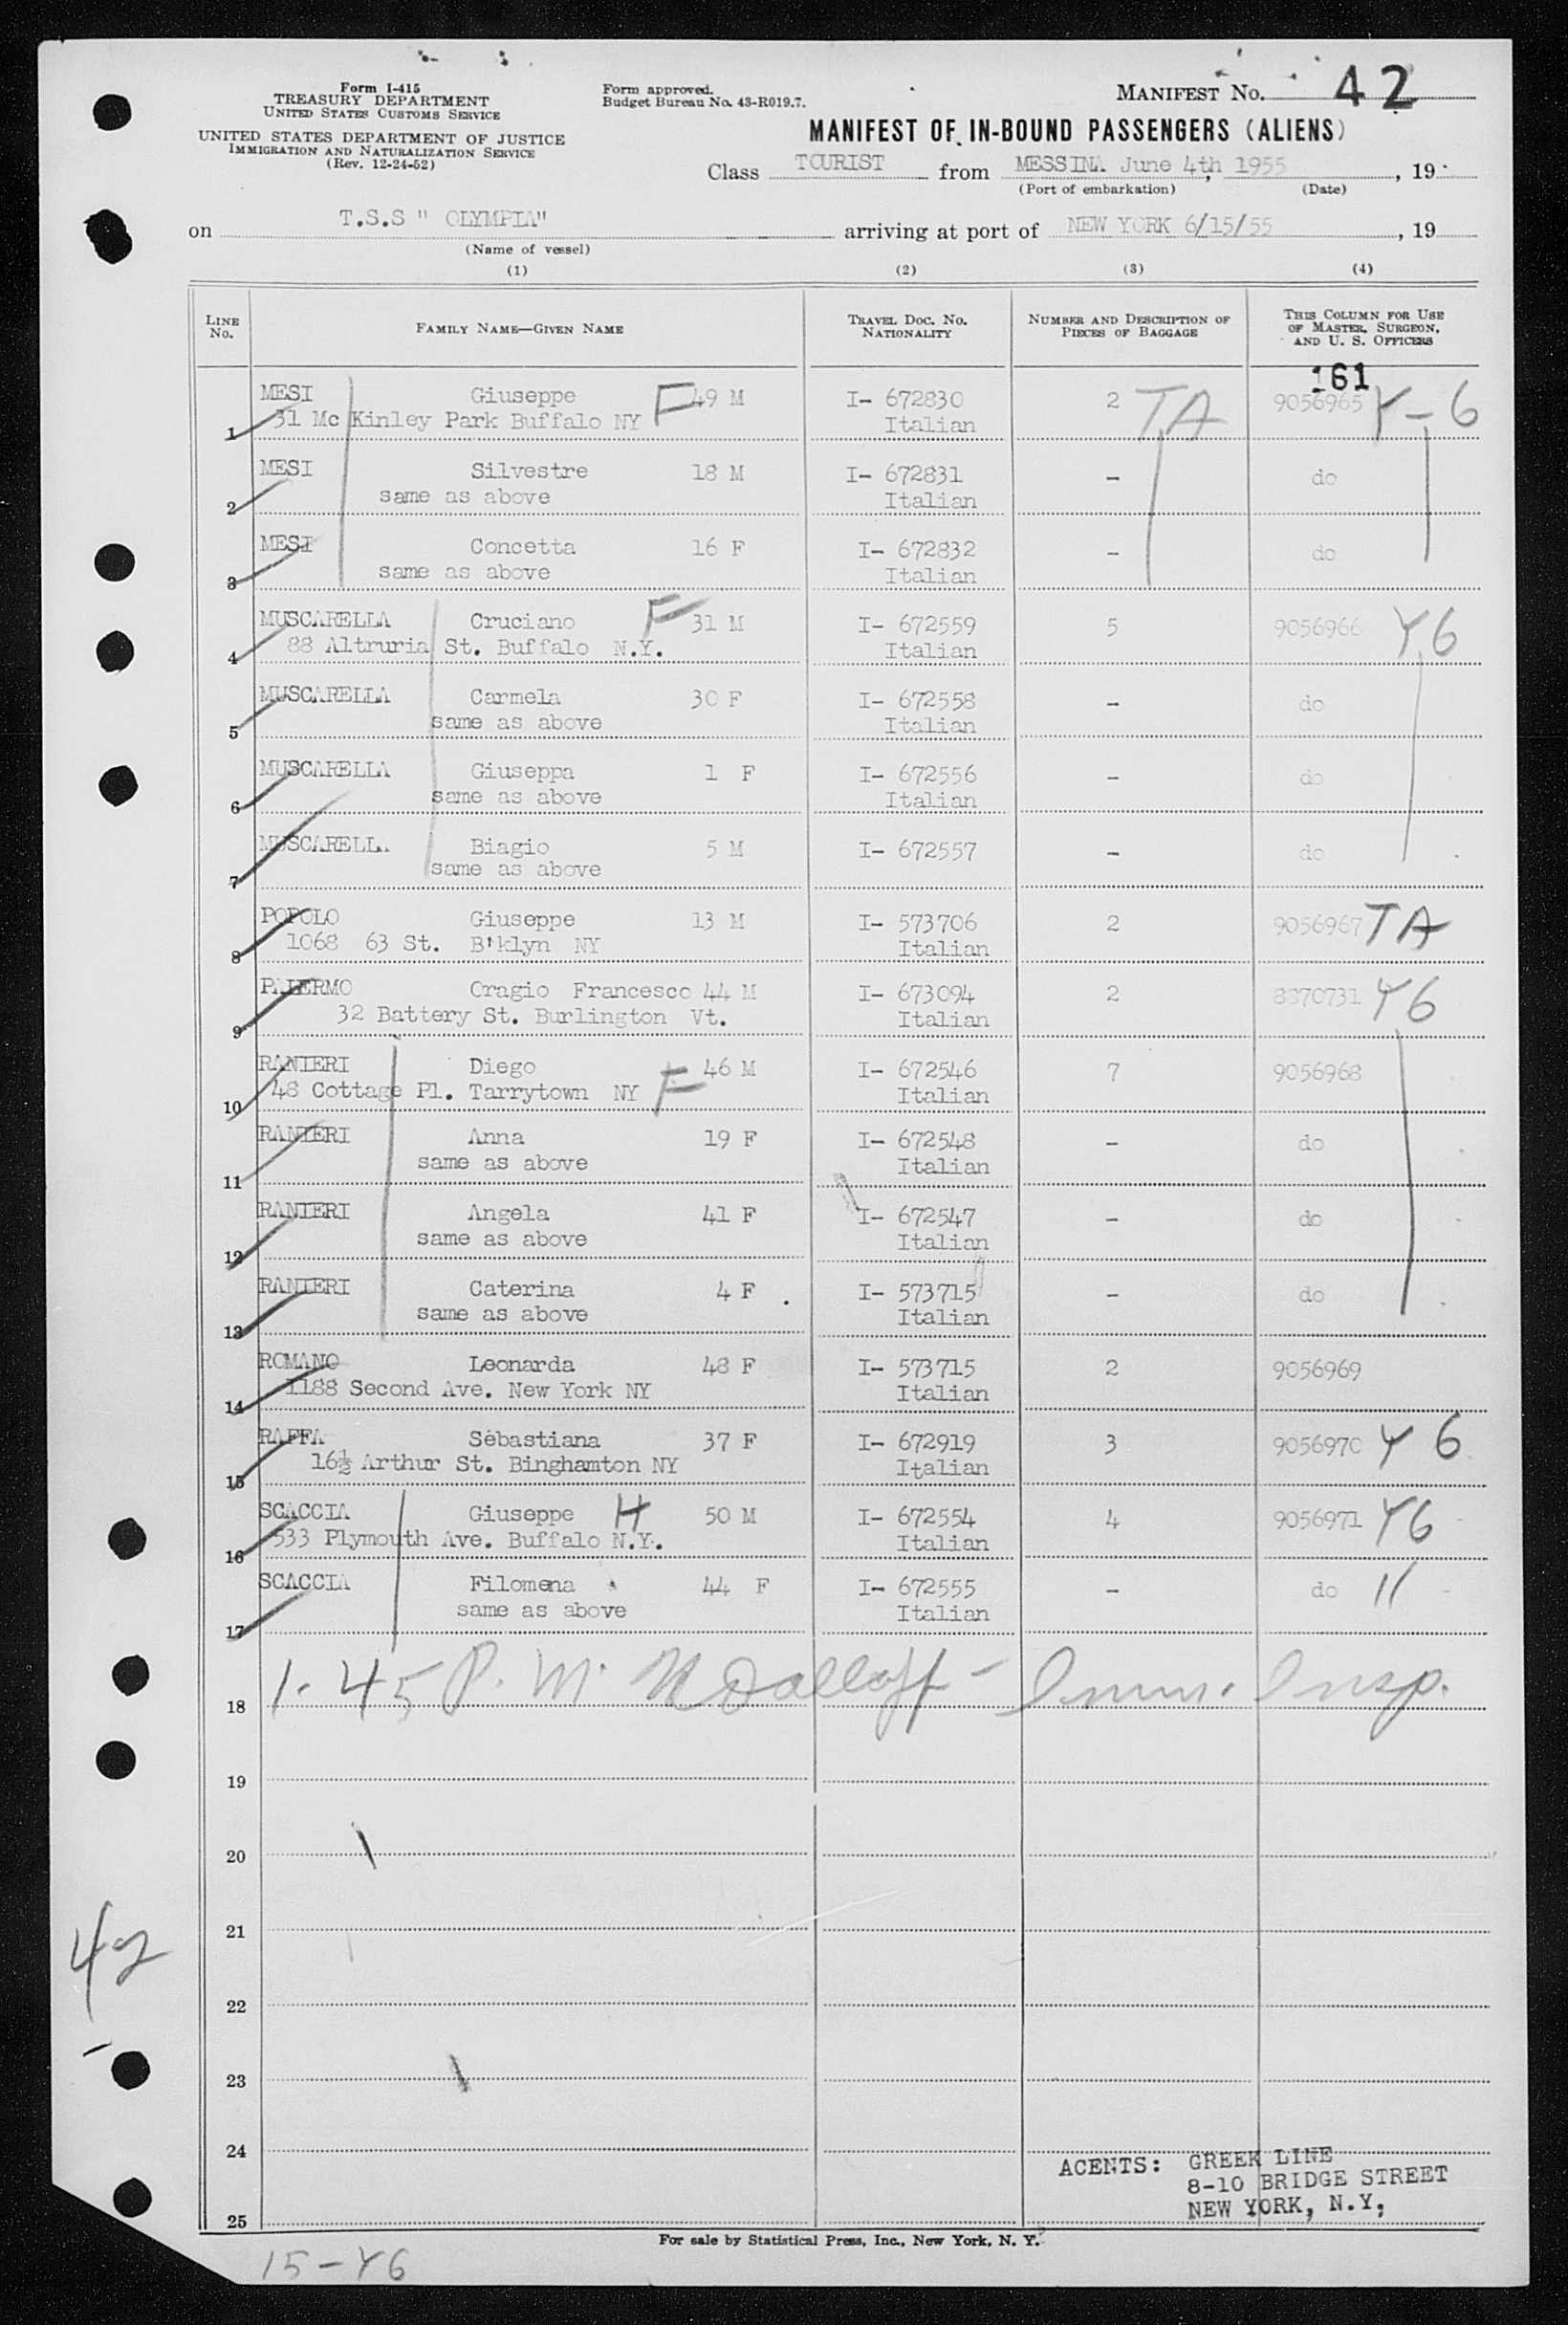 Form I-415
TREASURY DEPARTMENT
UNITED STATES CUSTOMS SERVICE
UNITED STATES DEPARTMENT OF JUSTICE
IMMIGRATION AND NATURALIZATION SERVICE
(Rev. 12-24-52)
Form approved.
Budget Bureau No. 43-R019.7.
MANIFEST No. 42
MANIFEST OF IN-BOUND PASSENGERS (ALIENS)
Class TOURIST from MESSINA June 4th, 1955, 19
(Port of embarkation) (Date)
on T.S.S " OLYMPIA" arriving at port of NEW YORK 6/15/55, 19
(Name of vessel)
(1) (2) (3) (4)
LINE No. FAMILY NAME—GIVEN NAME TRAVEL DOC. No. NATIONALITY NUMBER AND DESCRIPTION OF PIECES OF BAGGAGE THIS COLUMN FOR USE OF MASTER, SURGEON, AND U. S. OFFICERS
161
MESI Giuseppe F 49 M I- 672830 2 TA 9056965 Y-6
1 31 Mc Kinley Park Buffalo NY Italian
MESI Silvestre 18 M I- 672831 - do
2 same as above Italian
MESI Concetta 16 F I- 672832 - do
3 same as above Italian
MUSCARELLA Cruciano F 31 M I- 672559 5 9056966 Y6
4 88 Altruria St. Buffalo N.Y. Italian
MUSCARELLA Carmela 30 F I- 672558 - do
5 same as above Italian
MUSCARELLA Giuseppa 1 F I- 672556 - do
6 same as above Italian
MUSCARELLA Biagio 5 M I- 672557 - do
7 same as above
POPOLO Giuseppe 13 M I- 573706 2 9056967 TA
8 1068 63 St. B'klyn NY Italian
PALERMO Oragio Francesco 44 M I- 673094 2 8870731 Y6
9 32 Battery St. Burlington Vt. Italian
RANIERI Diego 46 M I- 672546 7 9056968
10 48 Cottage Pl. Tarrytown NY F Italian
RANIERI Anna 19 F I- 672548 - do
11 same as above Italian
RANIERI Angela 41 F I- 672547 - do
12 same as above Italian
RANIERI Caterina 4 F . I- 573715 - do
13 same as above Italian
ROMANO Leonarda 48 F I- 573715 2 9056969
14 1188 Second Ave. New York NY Italian
RAFFA Sebastiana 37 F I- 672919 3 9056970 Y 6
15 16½ Arthur St. Binghamton NY Italian
SCACCIA Giuseppe H 50 M I- 672554 4 9056971 Y6
16 533 Plymouth Ave. Buffalo N.Y. Italian
SCACCIA Filomena 44 F I- 672555 - do 11
17 same as above Italian
18 1.45 P.M. - Imm. Insp.
19
20
21
42
22
23
24
ACENTS: GREEK LINE
8-10 BRIDGE STREET
NEW YORK, N.Y,
25
For sale by Statistical Press, Inc., New York, N. Y.
15-Y6